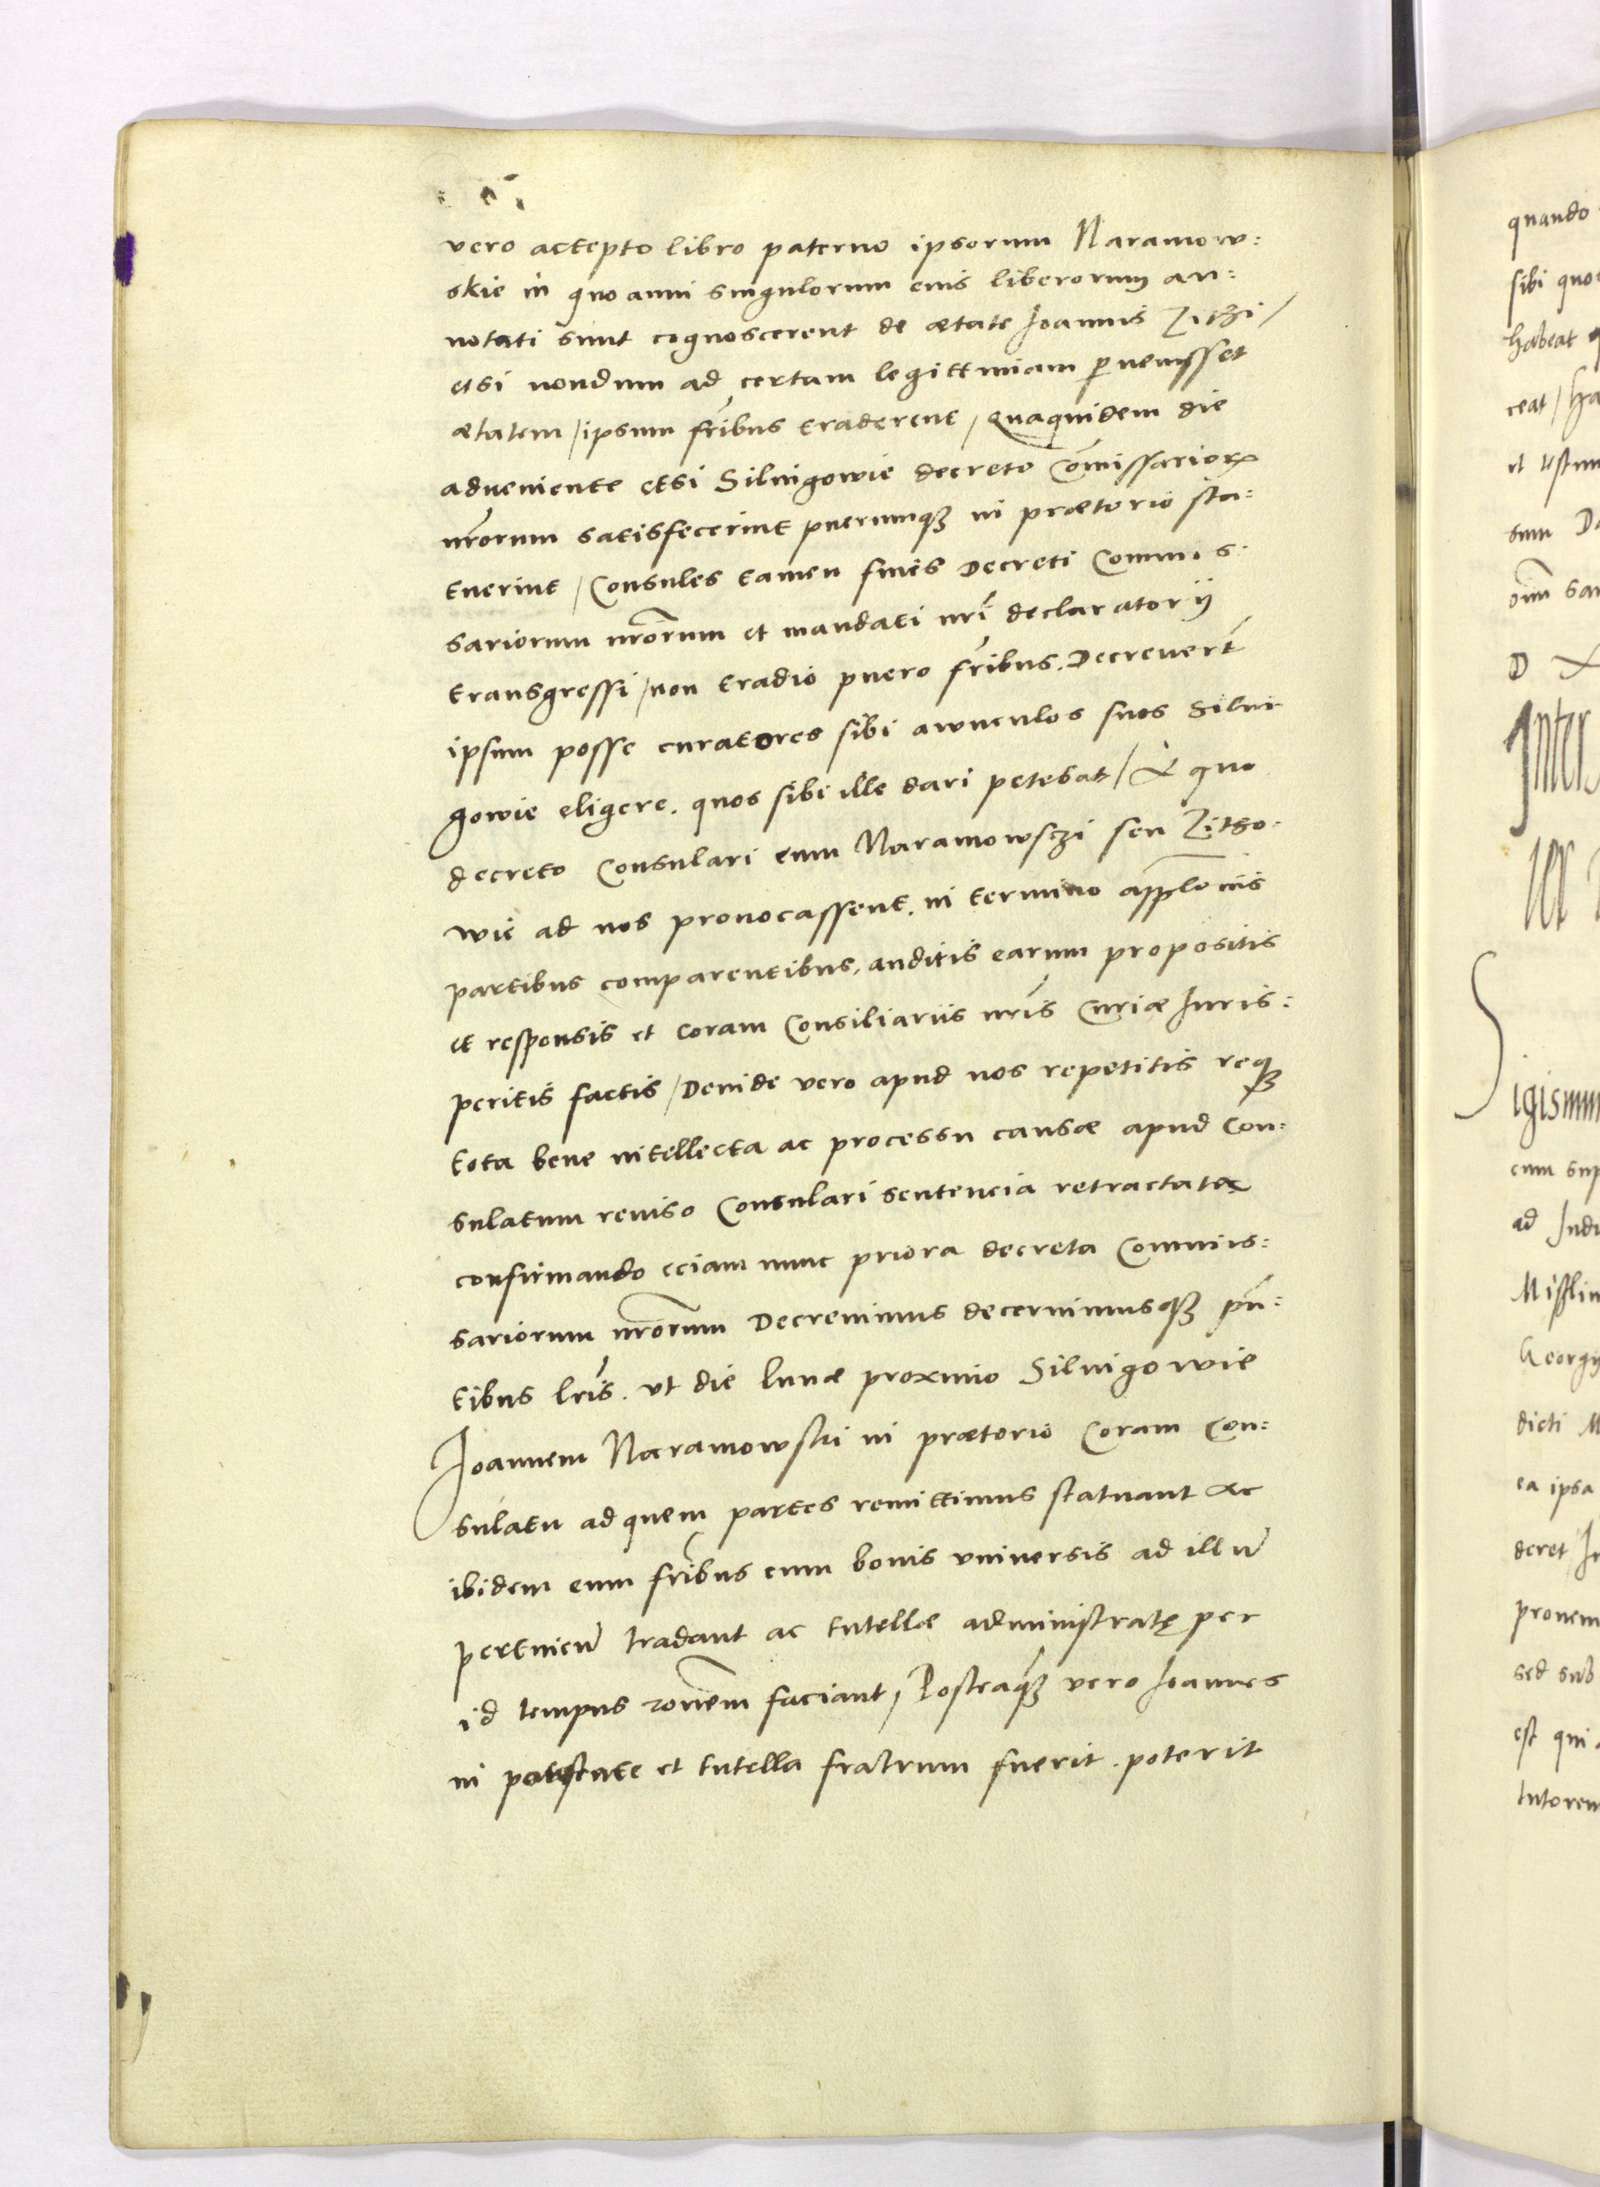 vero accepto libro paterno ipsorum Naramow:
skie in quo anni singulorum eius liberorum an:
notati sunt cognoscerent de ætate Joannis Zithzi /
etsi nondum ad certam legittimiam pervenisset
ætatem / ipsum fribus traderent, Quaquidem die
adveniente etsi Silnigowie decreto Comissariorum
nrorum satisfecerint puerumque in prætorio sta:
tuerint, Consules tamen fines Decreti Commis:
sariorum nrorum et mandati nri declaratorij
transgressi / non tradio puero fribus. Decrevert
ipsum posse curatores sibi awunculos suos Silni
gowie eligere. quos sibi ille dari petebat / A quo
decreto Consulari cum Naramowszi seu Zitho.
wie ad nos provocassent, in termino applonis
partibus comparentibus, auditis earum propositis
et responsis et coram Consiliariis nris Curiæ Juris:
peritis factis / Deinde vero apud nos repetitis reque
tota bene intellecta ac processu causæ apud Con:
sulatum reviso Consulari sentencia retractata
confirmando eciam nunc priora decreta Commis:
sariorum nrorum Decrevimus decernimusque pn:
tibus lris. ut die lunæ proximo Silnigowie
Joannem Naramowski in prætorio Coram Con:
sulatu ad quem partes remittimus statuant ac
ibidem eum fribus cum bonis universis ad illu
pertinen tradant ac tutellæ administratę per
id tempus ronem faciant, Posteaque vero Joannes
in potestate et tutella fratrum fuerit. poterit
quando
sibi quo
habeat
ceat / Ha
et
sum
oim
D
Inter
Sigismun
cum sup
ad Indu
Georgij
dicti M
ea ipsa
deret In
sed sub
est qui
tutorem